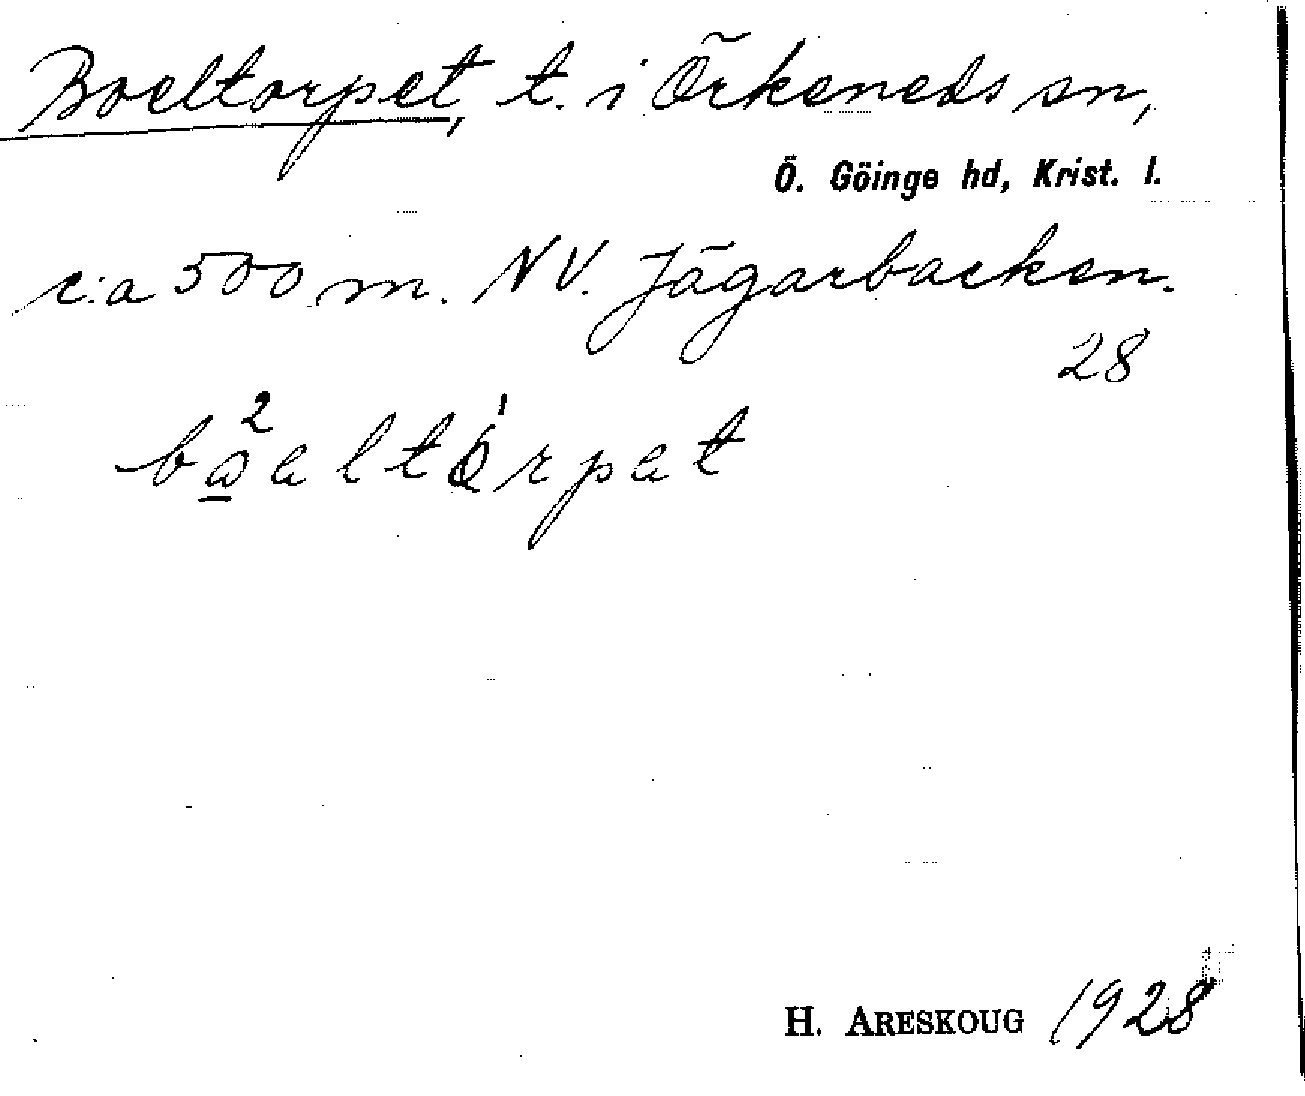 Boeltorpet, t. i Örkeneds sn,
Ö. Göinge hd, Krist. l.
c:a 500 m. NV. Jägarbacken.
28
H. ARESKOUG 1928